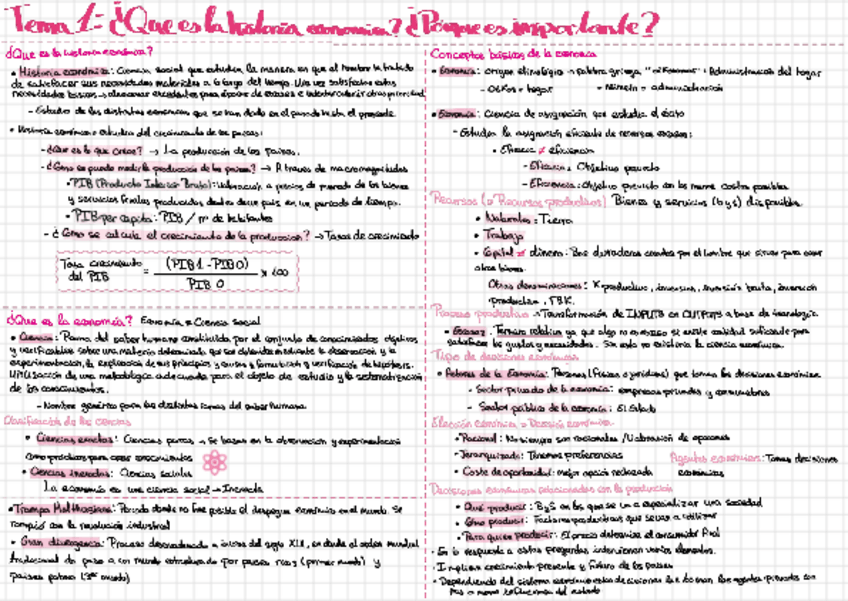 Tema 1: ¿Que es la historia economica? ¿Porque es importante?
¿Que es la historia económica?
• Historia económica: Ciencia social que estudia la manera en que el hombre ha tratado
de satisfacer sus necesidades materiales a lo largo del tiempo. Una vez satisfechas estas
necesidades básicas → almacenar excedentes para épocas de escasez e intentar cubrir otras
- Estudio de las distintas economías que se han dado en el pasado hasta el presente
• Historia económica estudia del crecimiento de los países:
- ¿Que es lo que crece? → La producción de los países.
- ¿Como se puede medir la producción de los países? → A traves de macromagnitudes
• PIB (Producto Interior Bruto): a precios de mercado de los bienes
y servicios finales producidos dentro de un país en un periodo de tiempo.
• PIB per capita: PIB / nº de habitantes
- ¿Como se calcula el crecimiento de la produccion? → Tasas de crecimiento
Tasa crecimiento del PIB = (PIB 1 - PIB 0) / PIB 0 x 100
¿Que es la economía? Economía = Ciencia social
• Ciencia: Rama del saber humano constituida por el conjunto de conocimientos objetivos
y verificables sobre una materia determinada que son obtenidos mediante la observación y la
experimentación, la explicación de sus principios y causas y formulación y verificación de hipótesis.
Utilización de una metodología adecuada para el objeto de estudio y la sistematización
de los conocimientos.
- Nombre generico para las distintas ramas del saber humano.
Clasificación de las ciencias
• Ciencias exactas: Ciencias puras → Se basan en la observación y experimentación
como prácticas para crear conocimientos
• Ciencias inexactas: Ciencias sociales
La economía es una ciencia social → Inexacta
• Trampa Malthusiana: Periodo donde no fue posible el despegue económico en el mundo. Se
rompió con la revolución industrial
• Gran divergencia: Proceso desencadenado a inicios del siglo XIX, en donde el orden mundial
tradicional da paso a un mundo estructurado por países ricos (primer mundo) y
países pobres (3er mundo)
Conceptos básicos de la economía
• Economía: origen etimológico → palabra griega "oikonomos": Administración del hogar
- Oikos = hogar - Nemein = administración
• Economía: Ciencia de asignación, que estudia el éxito
- Estudia la asignación eficiente de recursos escasos:
• Eficacia ≠ eficiencia
- Eficacia: Objetivo previsto
- Eficiencia: Objetivo previsto con los menos costes posibles
Recursos (o Recursos productivos) Bienes y servicios (b y s) disponibles
• Naturales: Tierra
• Trabajo
• Capital ≠ dinero: Bien duraderos creados por el hombre que sirven para crear
otros bienes.
Otras denominaciones: K productivo, inversión, inversión bruta, inversión
productiva, FBK.
Proceso productivo → Transformación de INPUTS en OUTPUTS a base de tecnología
• Escasez: Termino relativo ya que algo no es escaso si existe cantidad suficiente para
satisfacer los gustos y necesidades. Sin esto no existiria la ciencia económica.
Tipo de decisiones económicas
• Actores de la Economía: Personas (físicas o jurídicas) que toman las decisiones económicas
- Sector privado de la economía: empresas privadas y consumidores
- Sector público de la economía: El Estado
Elección económica = Decisión económica
• Racional: No siempre son racionales / Valoración de opciones
• Jerarquizado: Tenemos preferencias
• Coste de oportunidad: mejor opción rechazada
Agentes economicos: Toman decisiones
económicas
Decisiones económicas relacionadas con la producción
• Qué producir: ByS en los que se va a especializar una sociedad
• Cómo producir: Factores productivos que se van a utilizar
• Para quien producir: El precio determina el consumidor final
• En la respuesta a estas preguntas intervienen varios elementos.
• Implican crecimiento presente y futuro de los países
• Dependiendo del sistema económico estas decisiones las toman los agentes privados con
mas o menos influencia del estado